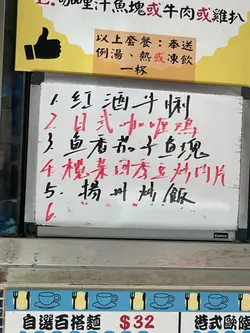 2.咖喱汁魚塊或牛肉或雞扒
以上套餐：奉送
例湯、熱或凍飲
一杯
1.紅酒牛脷
2.日式咖喱鷄
3.魚香茄子魚塊
4.欖菜肉松豆炒肉片
5.揚州炒飯
6.
自選百搭麵 $32
港式歐陸